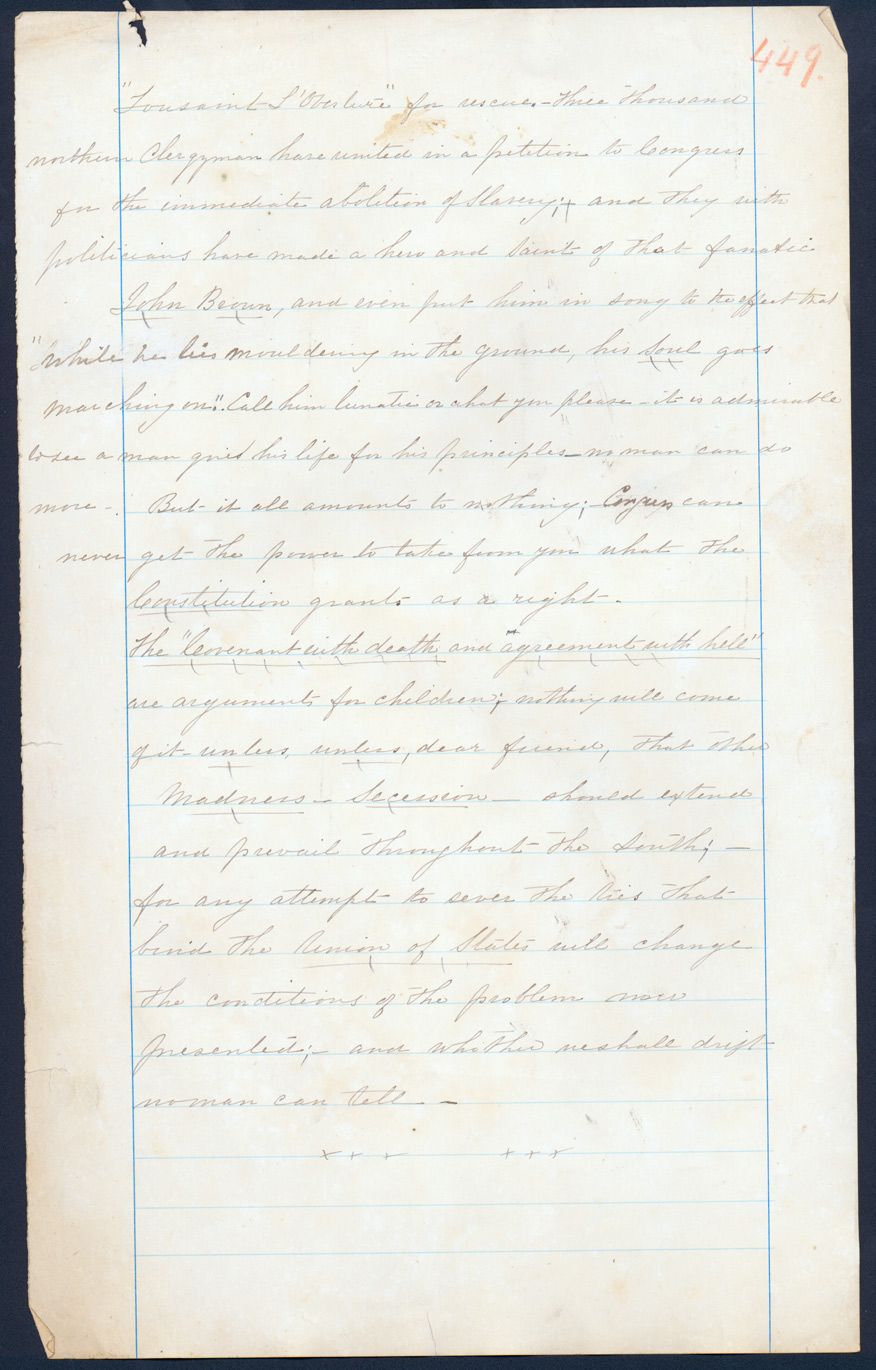 449.
"Tousaint L'Overture" for rescue. - Three Thousand
northern Clergyman have united in a petition to Congress
for the immediate abolition of Slavery; and they with
politicians have made a hero and saint of that fanatic
John Brown, and even put him in song to the effect that
"while he lies mouldering in the ground, his soul goes
marching on". Call him lunatic or what you please - it is admirable
to see a man give his life for his principles - no man can do
more -. But it all amounts to nothing; Congress can
never get the power to take from you what the
Constitution grants as a right.
The "Covenant with death and "agreement with hell"
are arguments for children; nothing will come
of it - unless, unless, dear friend, that other
Madness - Secession - should extend
and prevail throughout the South; -
for any attempt to sever the ties that
bind the Union of States will change
the conditions of the problem now
presented; - and whither we shall drift
no man can tell - -
x x x x x x